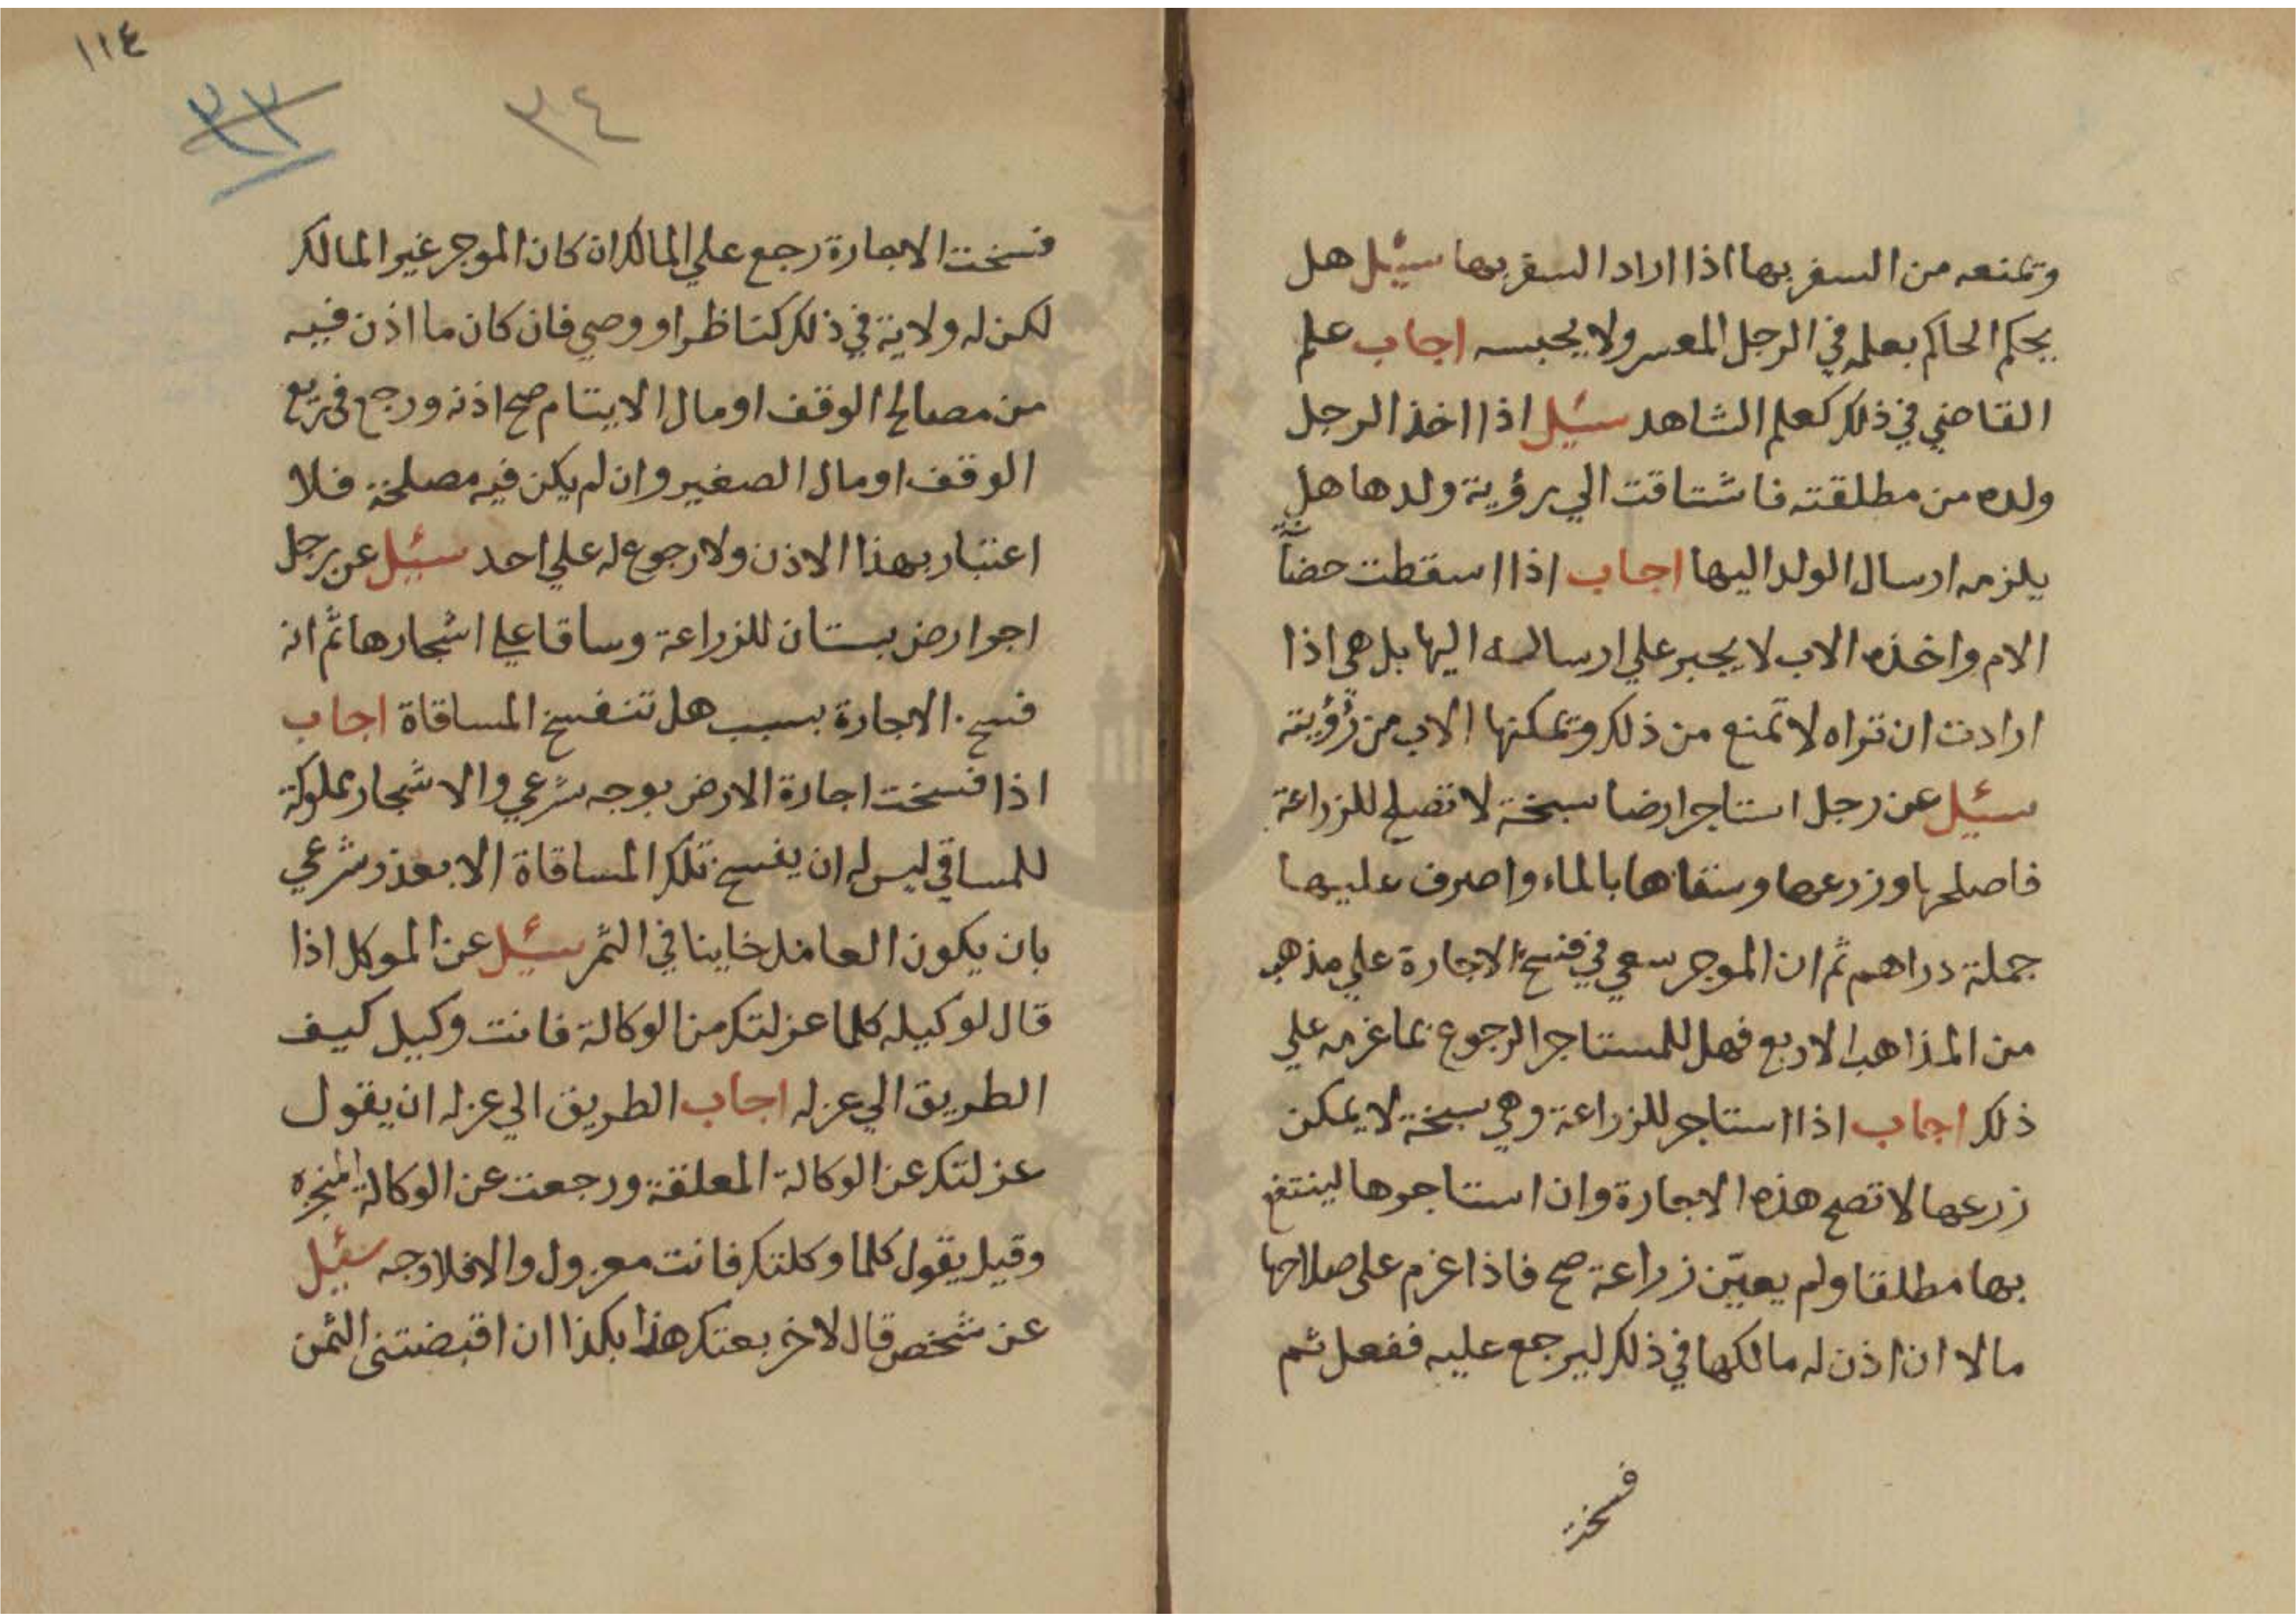 وتمنعه من السفر بها اذا اراد السفر بها سئيل هل
يحكم الحاكم بعلمه في الرجل المعسر ولا يحبسه اجاب علم
القاضي في ذلك كعلم الشاهد سئيل اذا اخذ الرجل
ولده من مطلقته فاشتاقت الي رؤية ولدها هل
يلزمه ارسال الولد اليها اجاب اذا اسقطت حضانة
الام واخذه الاب لا يجبر علي ارساله اليها بل هي اذا
ارادت ان تراه لا تمنع من ذلك وتمكنها الاب من رؤيته
سئيل عن رجل استاجر ارضا سبخة لا تصلح للزراعة
فاصلحها وزرعها وسقاها بالماء واصرف عليها
جملة دراهم ثم ان الموجر سعي في فسخ الاجارة علي مذهب
من المذاهب الاربع فهل للمستاجر الرجوع بما غرمه علي
ذلك اجاب اذا استاجر للزراعة وهي سبخة لا يمكن
زرعها لا تصح هذه الاجارة وان استاجرها لينتفع
بها مطلقا ولم يعيّن زراعة صح فاذا غرم على صلاحها
مالا ان اذن له مالكها في ذلك ليرجع عليه ففعل ثم
فسخت
١١٤
٣٣
٣٤
فسخت الاجارة رجع علي المالك ان كان الموجر غير المالك
لكن له ولاية في ذلك كناظر او وصي فان كان ما اذن فيه
من مصالح الوقف او مال الايتام صح اذنه ورجع في ريع
الوقف او مال الصغير وان لم يكن فيه مصلحة فلا
اعتبار بهذا الاذن ولا رجوع له علي احد سئيل عن رجل
اجر ارض بستان للزراعة وساقا علي اشجارها ثم انه
فسخ الاجارة بسبب هل تنفسخ المساقاة اجاب
اذا فسخت اجارة الارض بوجه شرعي والاشجار مملوكة
للمساقي ليس له ان يفسخ تلك المساقاة الا بعذر شرعي
بان يكون العامل خاينا في الثمر سئيل عن الموكل اذا
قال لوكيله كلما عزلتك من الوكالة فانت وكيل كيف
الطريق الي عزله اجاب الطريق الي عزله ان يقول
عزلتك عن الوكالة المعلقة ورجعت عن الوكالة المنجزه
وقيل يقول كلما وكلتك فانت معزول والا فلا وجه سئيل
عن شخص قال لاخر بعتك هذا بكذا ان اقبضتني الثمن